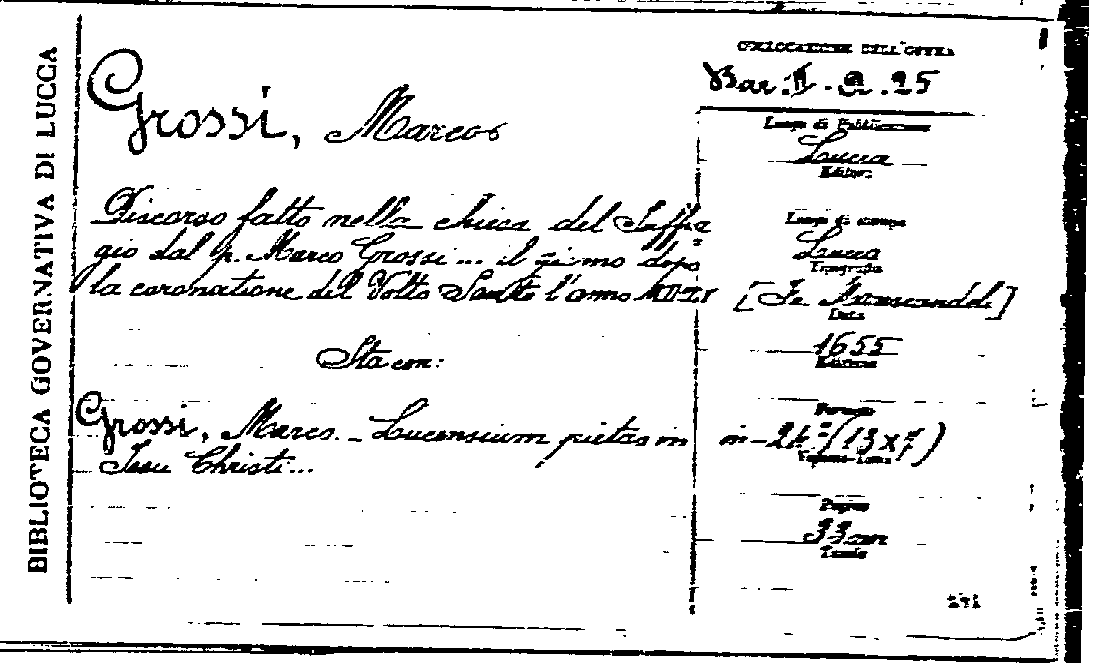 BIBLIOTECA GOVERNATIVA DI LUCCA
COLLOCAZIONE DELL'OPERA
Bar. II. a. 25
Grossi, Marco
Luogo di Pubblicazione
Lucca
Editore
Discorso fatto nella chiesa del Suffra
gio dal p. Marco Grossi... il giorno dopo
la coronatione del Volto Santo l'anno
Luogo di stampa
Lucca
Tipografia
Data
1655
Edizione
Sta con:
Grossi, Marco. - Lucensium pietas in
Jesu Christi...
Formato
in-24° (13x7)
Pagine
33
Tavole